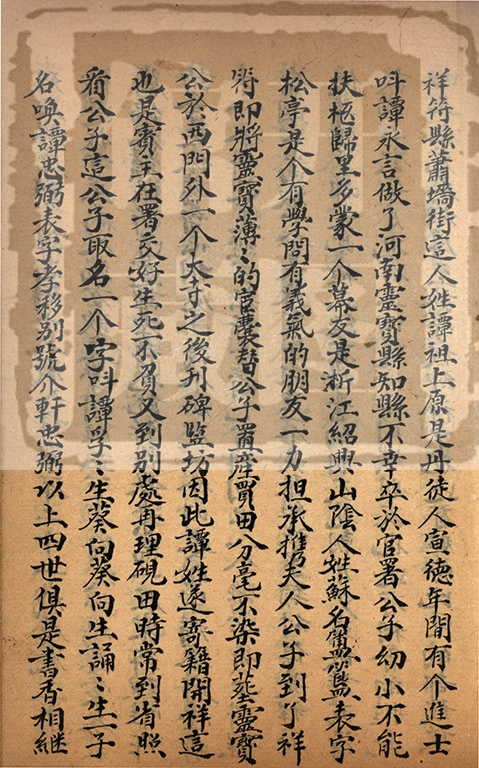 祥符縣蕭墻街這人姓譚祖上原是丹徒人宣德年間有个進士
呌譚永言做了河南靈寶縣知縣不幸卒於官署公子幼小不能
扶柩歸里多蒙一个幕友是浙江紹興山陰人姓蘇名簠簋表字
松亭是个有學問有義氣的朋友一力担承携夫人公子到了祥
符即將靈寶薄〻的宦囊替公子置產買田分毫不染即葬靈寶
公於西門外一个大寺之後刋碑竪坊因此譚姓遂寄籍開祥這
也是賓主在署交好生死不負又到別處再理硯田時常到省照
看公子這公子取名一个字呌譚孚〻生葵向葵向生誦〻生一子
名唤譚忠弼表字孝移別號介軒忠弼以上四世俱是書香相継